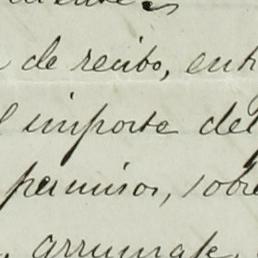 de recibo, entr
l importe del
permisos, sobre
arrumaje,